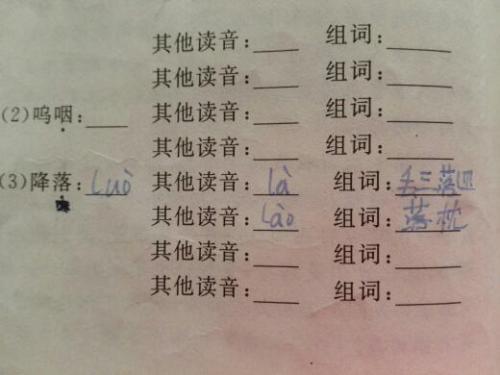 其他读音：___ 组词：___
其他读音：___ 组词：___
(2)呜咽：___ 其他读音：___ 组词：___
其他读音：___ 组词：___
(3)降落：Luò 其他读音：là 组词：丢三落四
其他读音：Lào 组词：落枕
其他读音：___ 组词：___
其他读音：___ 组词：___